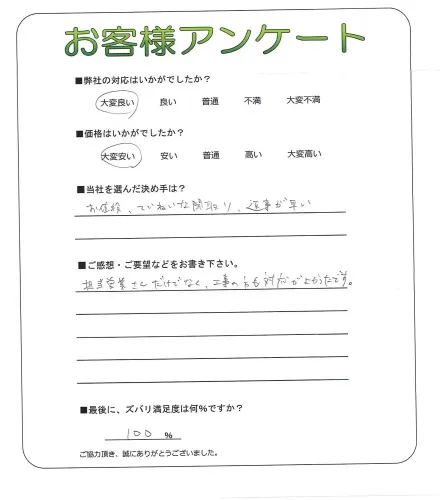 お客様アンケート
■弊社の対応はいかがでしたか?
大変良い 良い 普通 不満 大変不満
■価格はいかがでしたか?
大変安い 安い 普通 高い 大変高い
■当社を選んだ決め手は?
お値段、ていねいな聞取り、返事が早い
■ご感想・ご要望などをお書き下さい。
担当営業さんだけでなく、工事の方も対応がよかったです。
■最後に、ズバリ満足度は何%ですか?
100 %
ご協力頂き、誠にありがとうございました。